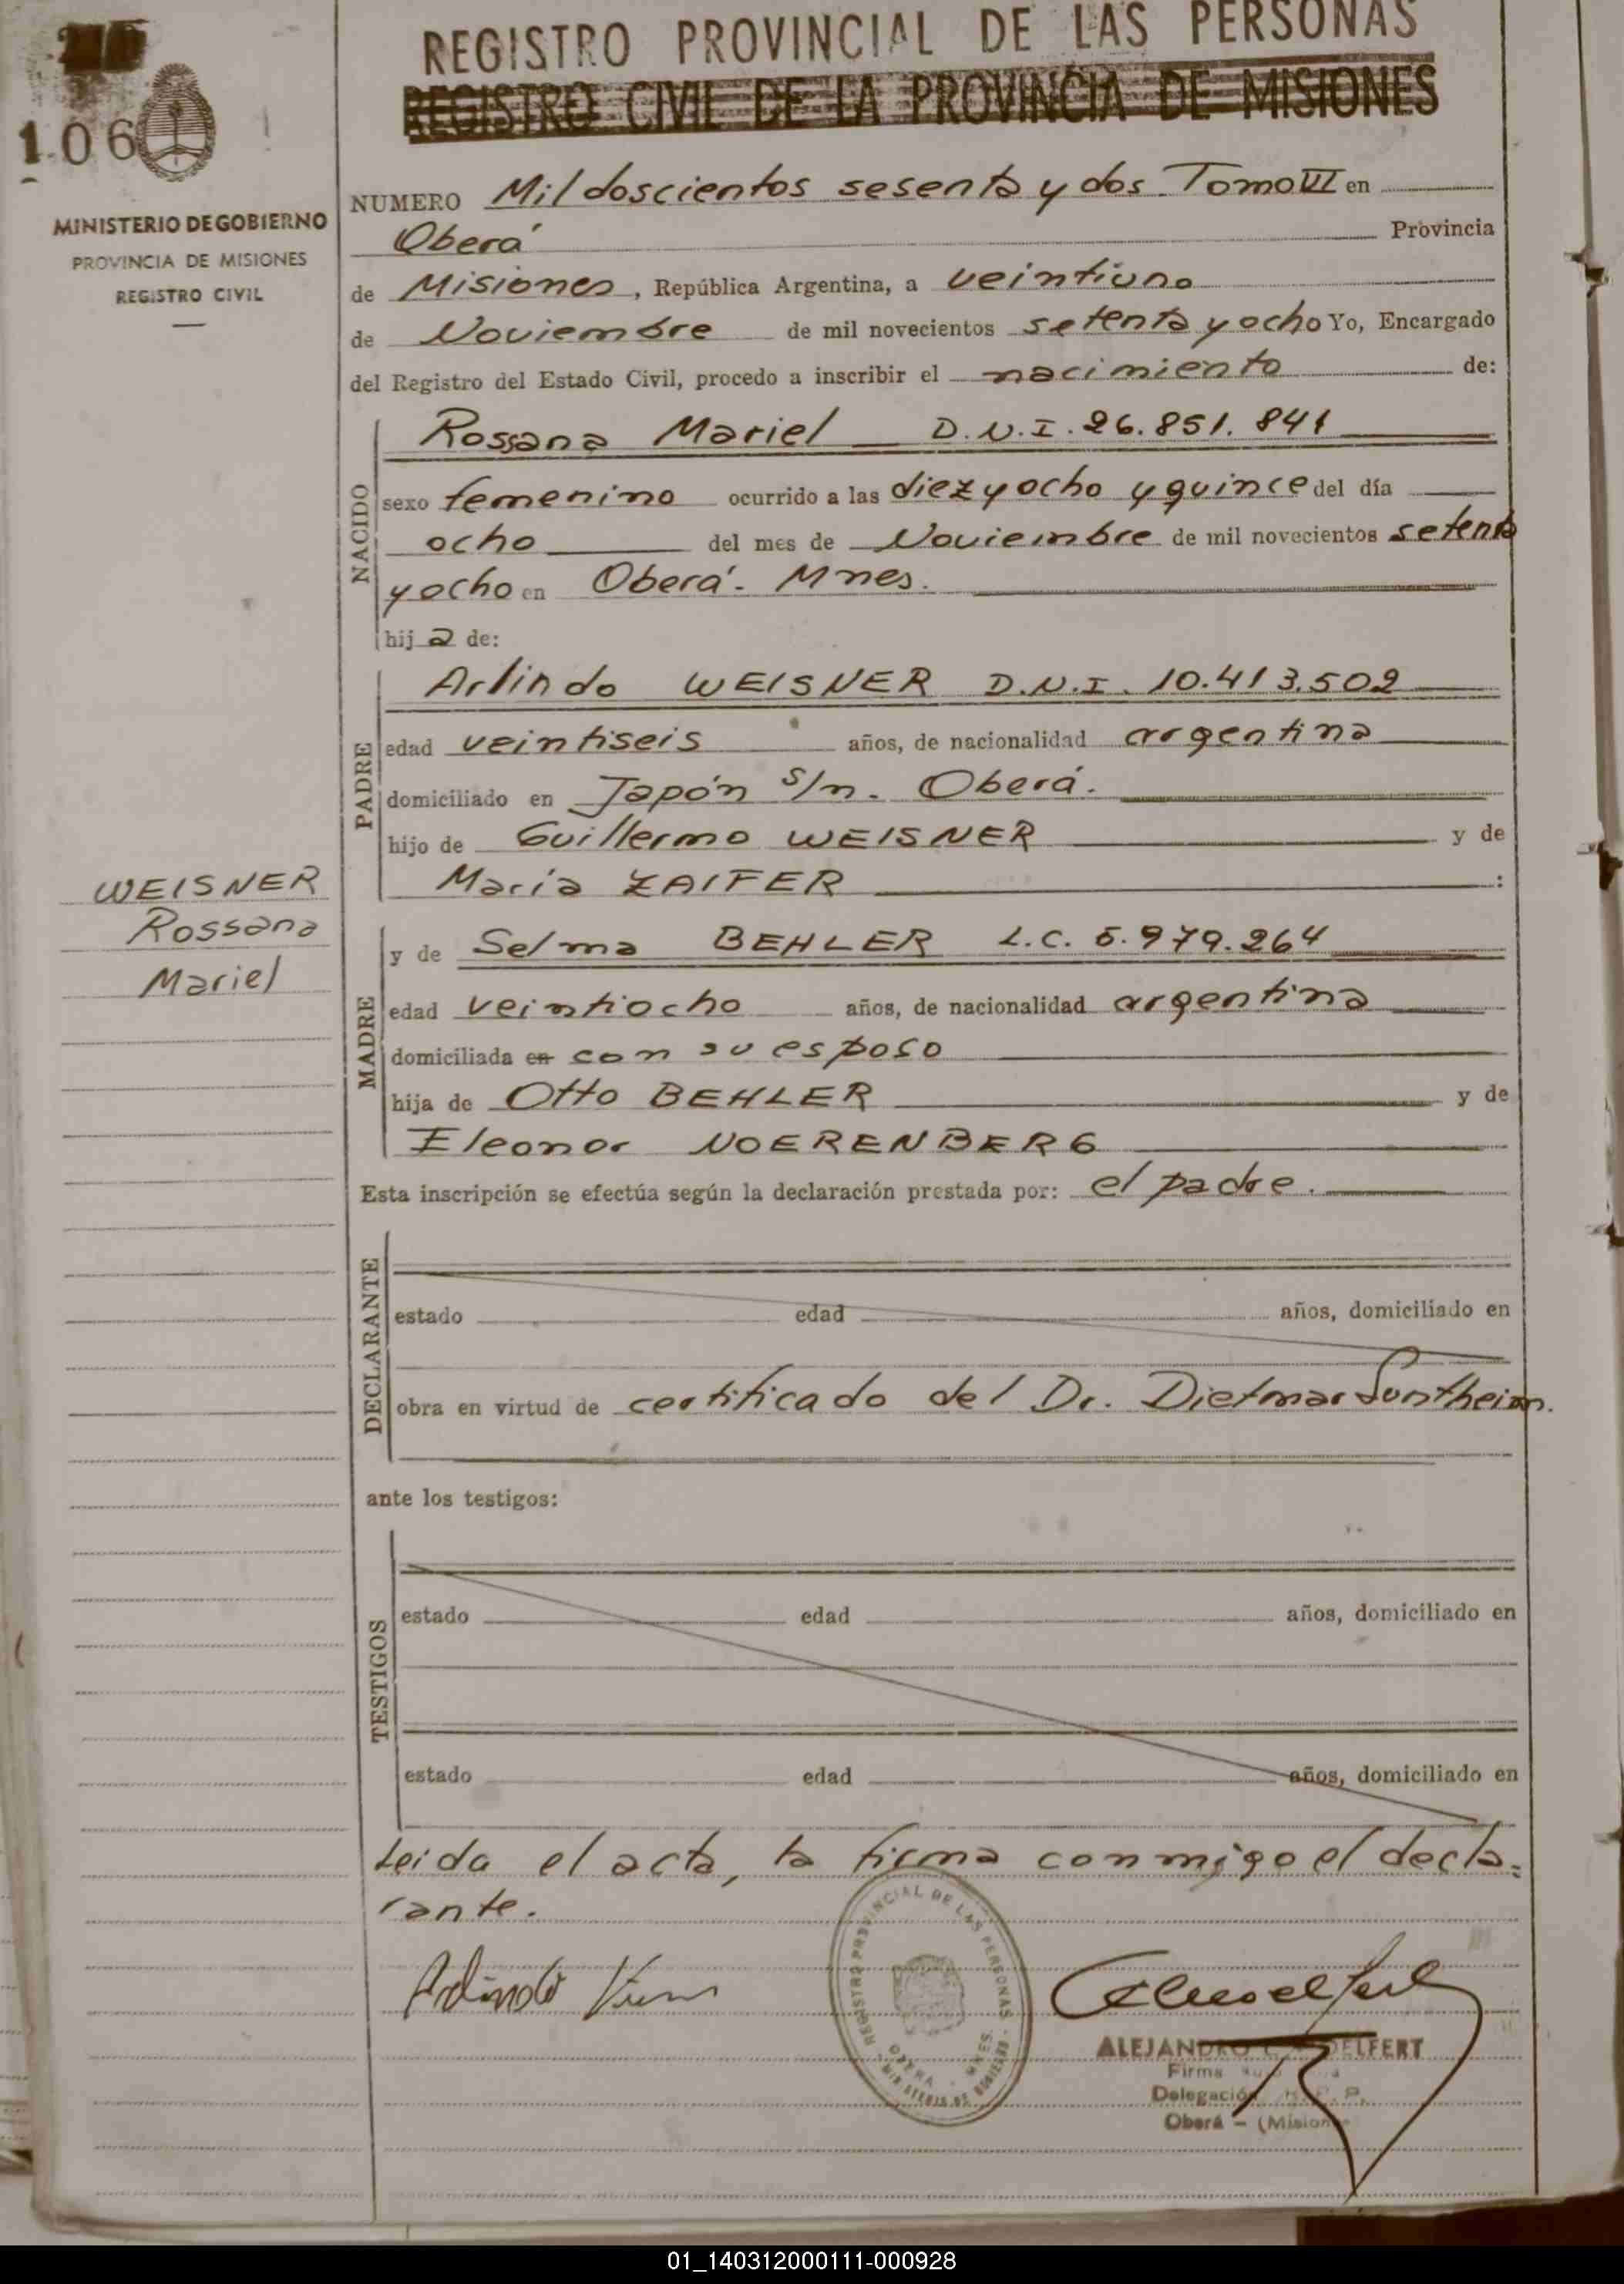 REGISTRO PROVINCIAL DE LAS PERSONAS
REGISTRO CIVIL DE LA PROVINCIA DE MISIONES
106
MINISTERIO DE GOBIERNO
PROVINCIA DE MISIONES
REGISTRO CIVIL
NUMERO Mil doscientos sesenta y dos. Tomo VI en
Oberá Provincia
de Misiones, República Argentina, a veintiuno
de Noviembre de mil novecientos setenta y ocho Yo, Encargado
del Registro del Estado Civil, procedo a inscribir el nacimiento de:
NACIDO
Rossana Mariel D.N.I. 26.851.841
sexo femenino ocurrido a las diez y ocho y quince del día
ocho del mes de Noviembre de mil novecientos setenta
y ocho en Oberá. Mnes.
hija de:
PADRE
Arlindo WEISNER D.N.I. 10.413.502
edad veintiseis años, de nacionalidad argentina
domiciliado en Japón s/n. Oberá.
hijo de Guillermo WEISNER y de
María ZAIFER :
WEISNER
Rossana
Mariel
MADRE
y de Selma BEHLER L.C. 5.979.264
edad veintiocho años, de nacionalidad argentina
domiciliada en con su esposo
hija de Otto BEHLER y de
Eleonor NOERENBERG
Esta inscripción se efectúa según la declaración prestada por: el padre.
DECLARANTE
estado edad años, domiciliado en
obra en virtud de certificado del Dr. Dietmar Sontheim.
ante los testigos:
TESTIGOS
estado edad años, domiciliado en
estado edad años, domiciliado en
Leida el acta, la firma conmigo el decla-
rante.
REGISTRO PROVINCIAL DE LAS PERSONAS
OBERA - MNES.
ALEJANDRO DELFERT
Firma
Delegación R. P. P.
Oberá - (Misiones
01_140312000111-000928